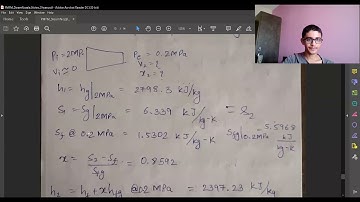 P₁=2MPa
P₂ = 0.2MPa
V₁ ≈ 0
V₂ = ?
x₂ = ?
h₁ = hg|2MPa = 2798.3 kJ/kg
S₁ = Sg|2MPa = 6.339 kJ/kg-K = S₂
Sf @ 0.2MPa = 1.5302 kJ/kg-K Sfg|0.2MPa = 5.5968 kJ/kg-K
x = S₂ - Sf / Sfg = 0.8592
h₂ = hf + xhfg @0.2 MPa = 2397.23 kJ/kg